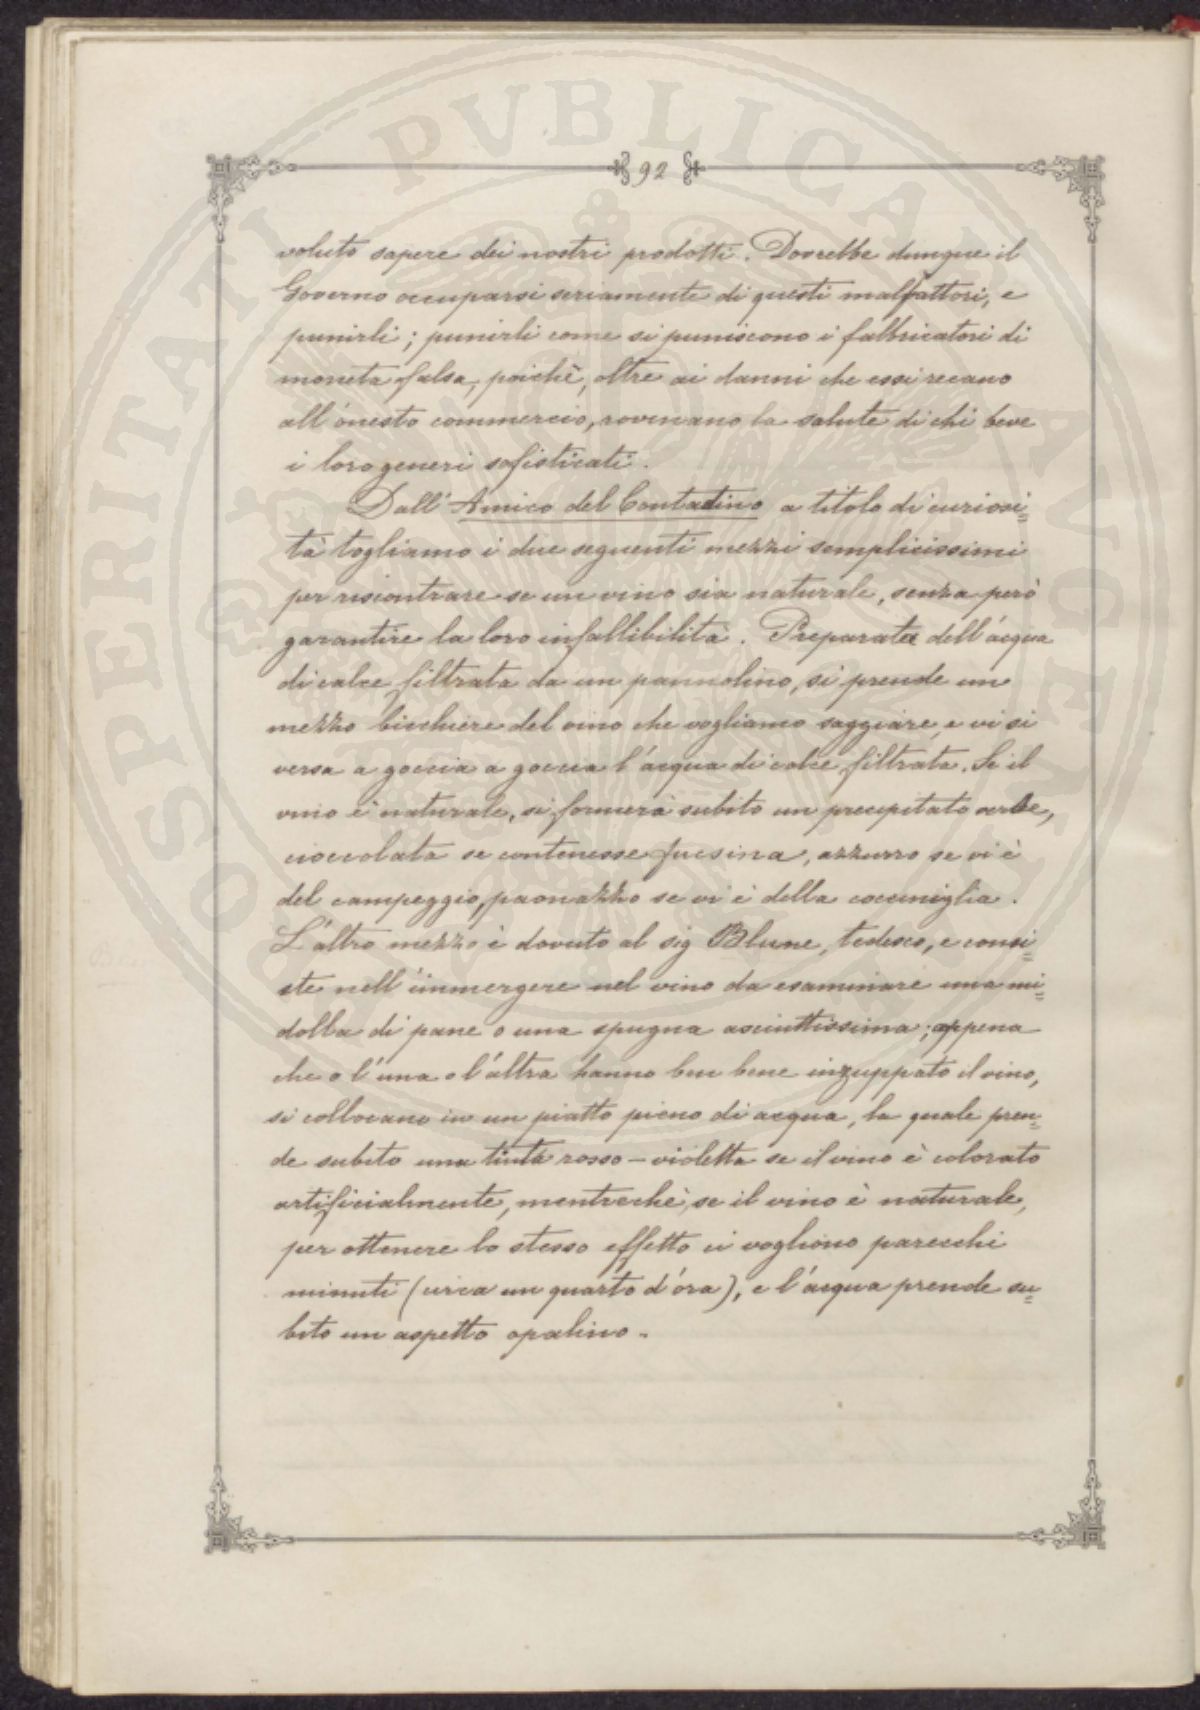 92
voluto sapere dei nostri prodotti. Dovrebbe dunque il
Governo occuparsi seriamente di questi malfattori, e
punirli; punirli come si puniscono i fabbricatori di
moneta falsa, poichè, oltre ai danni che essi recano
all'onesto commercio, rovinano la salute di chi beve
i loro generi sofisticati.
Dall'Amico del Contadino a titolo di curiosi=
tà togliamo i due seguenti mezzi semplicissimi
per riscontrare se un vino sia naturale, senza però
garantire la loro infallibilità. Preparata dell'acqua
di calce filtrata da un pannolino, si prende un
mezzo bicchiere del vino che vogliamo saggiare, e vi si
versa a goccia a goccia l'acqua di calce filtrata. Se il
vino è naturale, si formerà subito un precipitato verde,
cioccolata se contenesse fucsina, azzurro se vi è
del campeggio, paonazzo se vi è della cocciniglia.
L'altro mezzo è dovuto al sig Blune, tedesco, e consi=
ste nell'immergere nel vino da esaminare una mi=
dolla di pane o una spugna asciuttissima; appena
che o l'una o l'altra hanno ben bene inzuppato il vino,
si collocano in un piatto pieno di acqua, la quale pren=
de subito una tinta rosso-violetta se il vino è colorato
artificialmente, mentrechè, se il vino è naturale,
per ottenere lo stesso effetto ci vogliono parecchi
minuti (circa un quarto d'ora), e l'acqua prende su=
bito un aspetto opalino.
SPERITATI PVBLICAE AVGENDAE